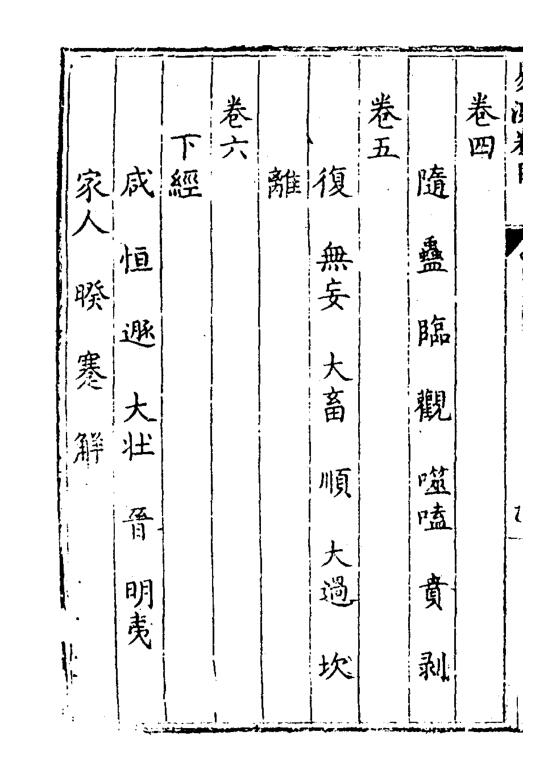 卷四
隨 蠱 臨 觀 噬嗑 賁 剥
卷五
復 無妄 大畜 順 大過 坎
離
卷六
下經
咸 恒 遯 大壯 晉 明夷
家人 暌 蹇 解